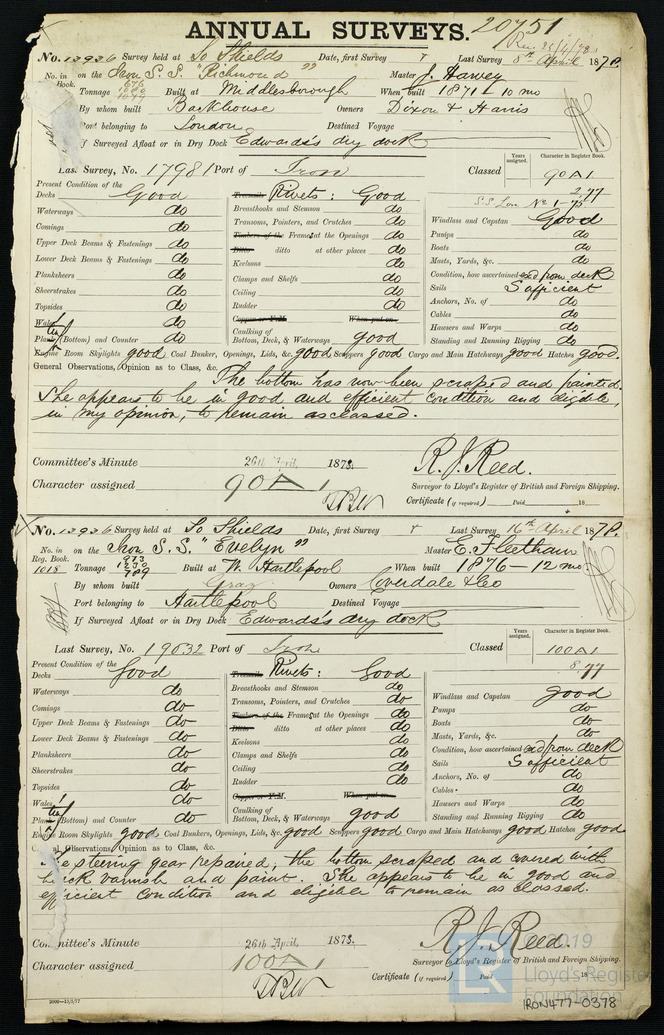 ANNUAL SURVEYS. 20751
Rec 25/4/78
No. 13936 Survey held at So Shields Date, first Survey Last Survey 8th April 1878.
No. in Book. on the Iron S.S. "Richmond" Master J. Harvey
Tonnage Built at Middlesborough When built 1871-10 mo
By whom built Backhouse Owners Dixon & Harris
Port belonging to London Destined Voyage
If Surveyed Afloat or in Dry Dock Edwards's dry dock
Last Survey, No. 17981 Port of Iron Classed Years assigned. Character in Register Book. 90A1
2.77
S.S. Lon No 1-75
Present Condition of the
Decks Good Rivets: Good Windlass and Capstan Good
Waterways do Breasthooks and Stemson do Pumps do
Comings do Transoms, Pointers, and Crutches do Boats do
Upper Deck Beams & Fastenings do Timbers of the Frames at the Openings do Masts, Yards, &c. do
Lower Deck Beams & Fastenings do Ditto ditto at other places do Condition, how ascertained exd from deck
Planksheers do Keelsons do Sails Sufficient
Sheerstrakes do Clamps and Shelfs do Anchors, No. of do
Topsides do Ceiling do Cables do
Wales do Rudder do Hawsers and Warps do
Plank (Bottom) and Counter do Copper or Y.M. When put on Standing and Running Rigging do
Caulking of Bottom, Deck, & Waterways good
Engine Room Skylights good Coal Bunker, Openings, Lids, &c. good Scuppers good Cargo and Main Hatchways good Hatches good.
General Observations, Opinion as to Class, &c.
The bottom has now been scraped and painted.
She appears to be in good and efficient condition and eligible,
in my opinion, to remain as classed.
Committee's Minute 26th April, 1878. R. J. Reed.
Character assigned 90A1 Surveyor to Lloyd's Register of British and Foreign Shipping.
Certificate (if required) Paid 18
No. 13936 Survey held at So Shields Date, first Survey Last Survey 16th April 1878.
No. in Reg. Book. on the Iron S.S. "Evelyn" Master E. Fleetham
1018 Tonnage 973 1230 789 Built at W. Hartlepool When built 1876-12 mo
By whom built Gray Owners Coverdale & Co
Port belonging to Hartlepool Destined Voyage
If Surveyed Afloat or in Dry Dock Edwards's dry dock
Last Survey, No. 19032 Port of Iron Classed Years assigned. Character in Register Book. 100A1
8.77
Present Condition of the
Decks Good Rivets: Good Windlass and Capstan good
Waterways do Breasthooks and Stemson do Pumps do
Comings do Transoms, Pointers, and Crutches do Boats do
Upper Deck Beams & Fastenings do Timbers of the Frames at the Openings do Masts, Yards, &c. do
Lower Deck Beams & Fastenings do Ditto ditto at other places do Condition, how ascertained exd from deck
Planksheers do Keelsons do Sails Sufficient
Sheerstrakes do Clamps and Shelfs do Anchors, No. of do
Topsides do Ceiling do Cables do
Wales do Rudder do Hawsers and Warps do
Plank (Bottom) and Counter do Copper or Y.M. When put on Standing and Running Rigging do
Caulking of Bottom, Deck, & Waterways good
Engine Room Skylights good Coal Bunkers, Openings, Lids, &c. good Scuppers good Cargo and Main Hatchways good Hatches good
General Observations, Opinion as to Class, &c.
The steering gear repaired, the bottom scraped and covered with
black varnish and paint. She appears to be in good and
efficient condition and eligible to remain as classed.
Committee's Minute 26th April, 1878. R. J. Reed.
Character assigned 100A1 Surveyor to Lloyd's Register of British and Foreign Shipping.
Certificate (if required) Paid 18
2000-13/3/77
© 2019
Lloyd's Register
Foundation
IRON477-0378